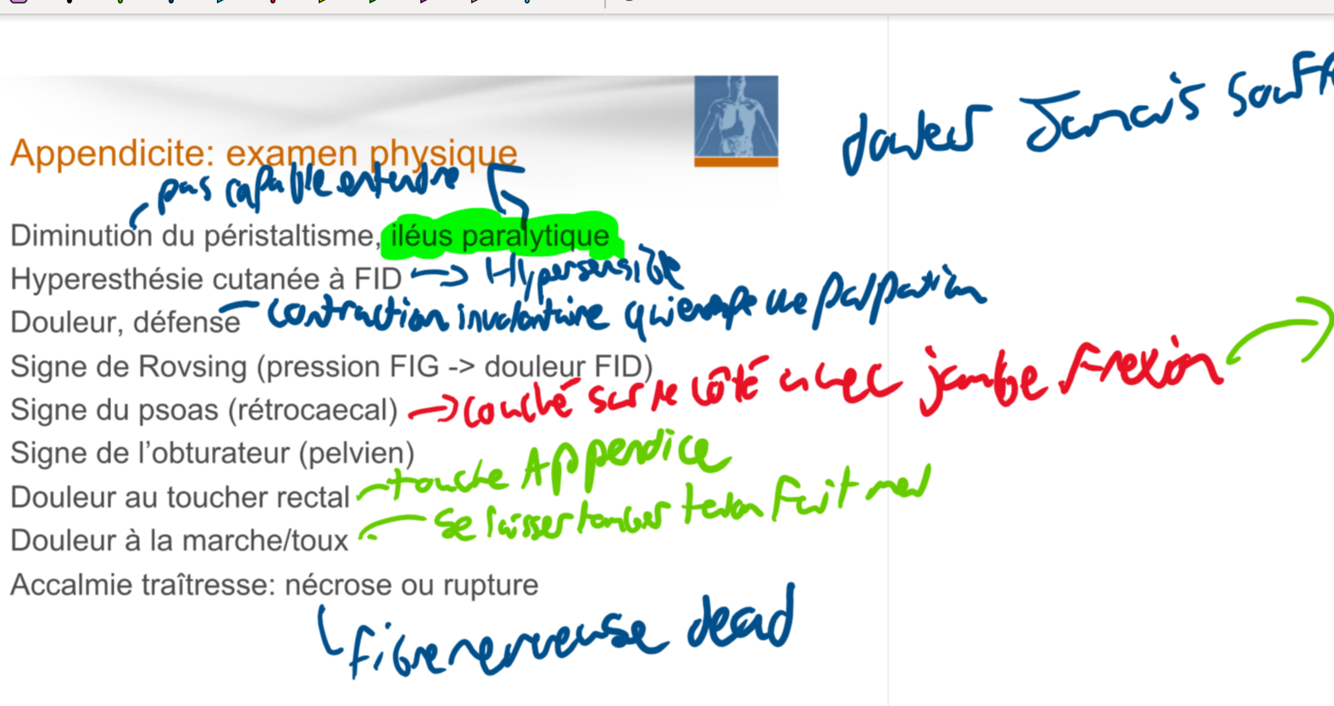 Jamais
Appendicite: examen physique
pas capable entendre
Diminution du péristaltisme, iléus paralytique
Hyperesthésie cutanée à FID → Hypersensible
Douleur, défense contraction involontaire qui palpation
Signe de Rovsing (pression FIG -> douleur FID)
Signe du psoas (rétrocaecal) → couché sur le côté avec jambe
Signe de l'obturateur (pelvien)
Douleur au toucher rectal touche Appendice
Douleur à la marche/toux se laisser tomber talon fait mal
Accalmie traîtresse: nécrose ou rupture
fibre nerveuse dead